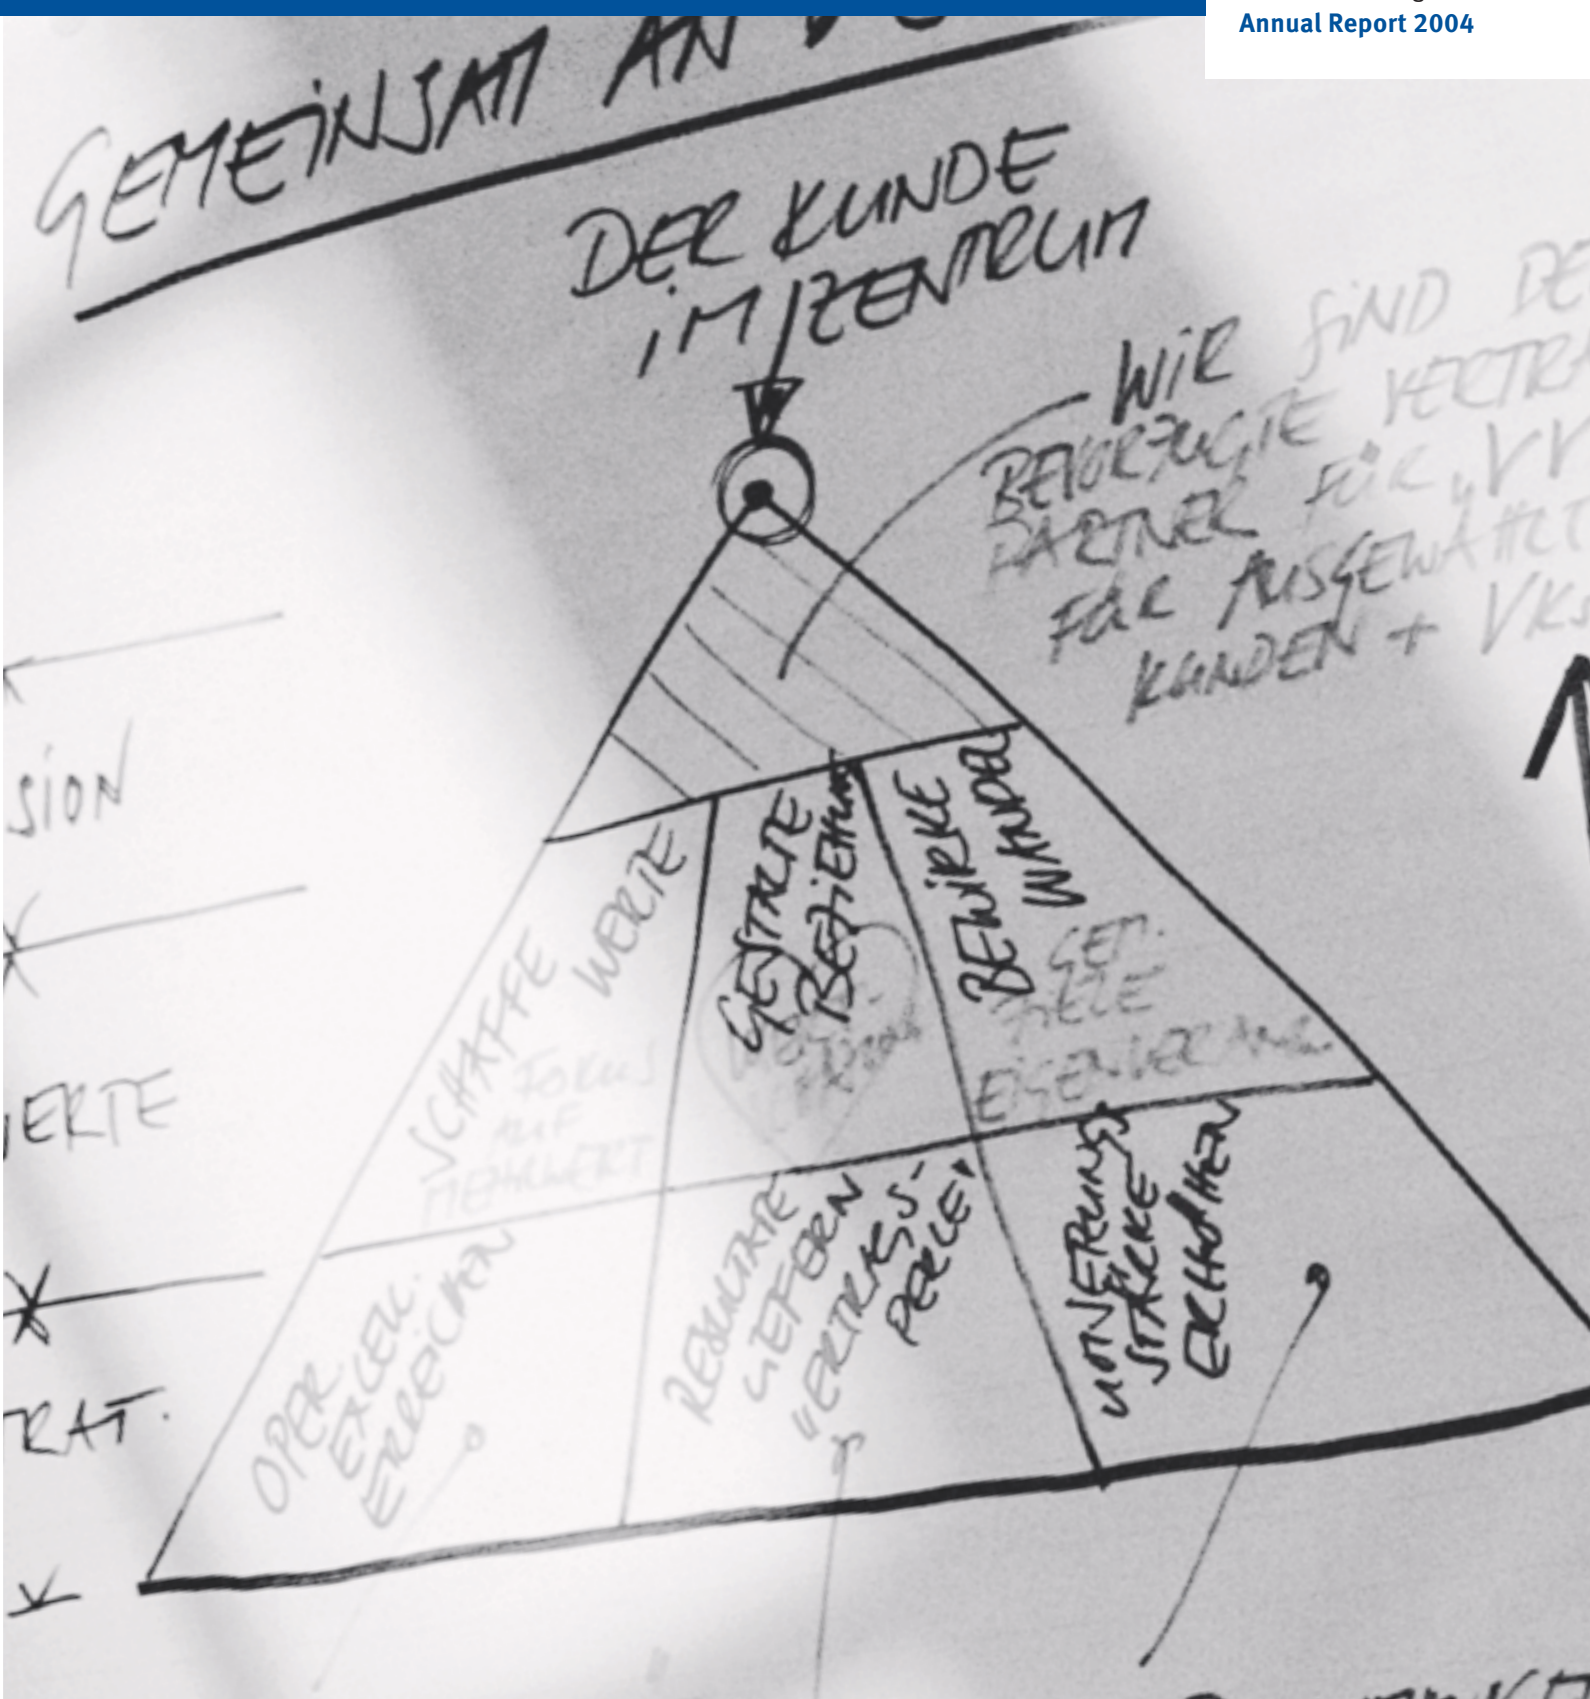 Annual Report 2004
GEMEINSAM AN
DER KUNDE
IM ZENTRUM
WIR SIND DE
BEVORZUGTE VERTRA
PARTNER FÜR „VV
FÜR AUSGEWÄHLT
KUNDEN + VKS
SION
ERTE
RAT.
SCHAFFE WERTE
FOKUS
AUF
MEHRWERT
GESTALTE
BEZIEHUNG
BEWIRKE
WANDEL
GEM.
ZIELE
EIGENVERANT.
OPER.
EXCELL.
ERREICHEN
RESULTATE
LIEFERN
"ERTRAGS-
PERLE"
STÄRKE
ERHÖHEN